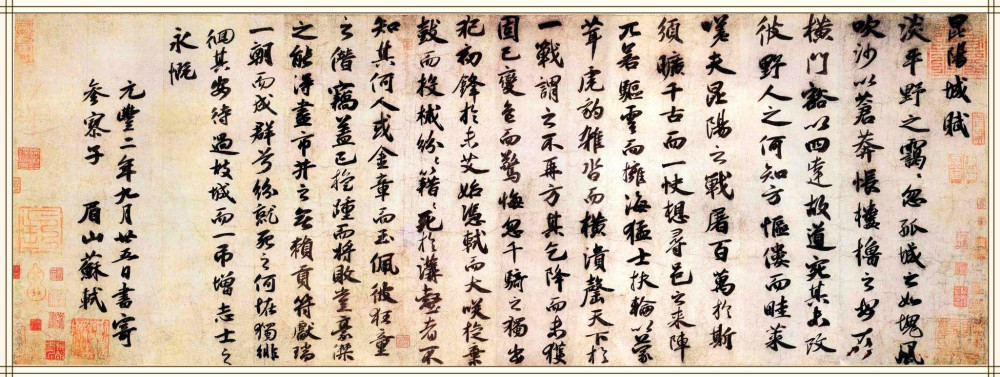 昆陽城賦
淡平野之靄〻忽孤城之如塊風
吹沙以蒼莽悵樓櫓之安在
橫門豁以四達故道宛其未改
彼野人之何知方傴僂而畦菜
嗟夫昆陽之戰屠百萬於斯
須曠千古而一快想尋邑之來陣
兀若驅雲而擁海猛士扶輪以蒙
茸虎豹雜沓而橫潰罄天下於
一戰謂之不再方其乞降而未獲
固已變色而驚悔忽千騎之獨出
犯初鋒於未艾始憑軾而大咲旋棄
鼓而投械紛〻籍〻死於溝壑者不
知其何人或金章而玉佩彼狂童
之僭竊蓋已旋踵而將敗豈豪傑
之能得盡市井之無賴貢符獻瑞
一朝而成群兮紛就死之何怪獨徘
徊其安待過故城而一弔增志士之
永慨
元豐二年九月廿五日書寄
參寥子 眉山蘇軾